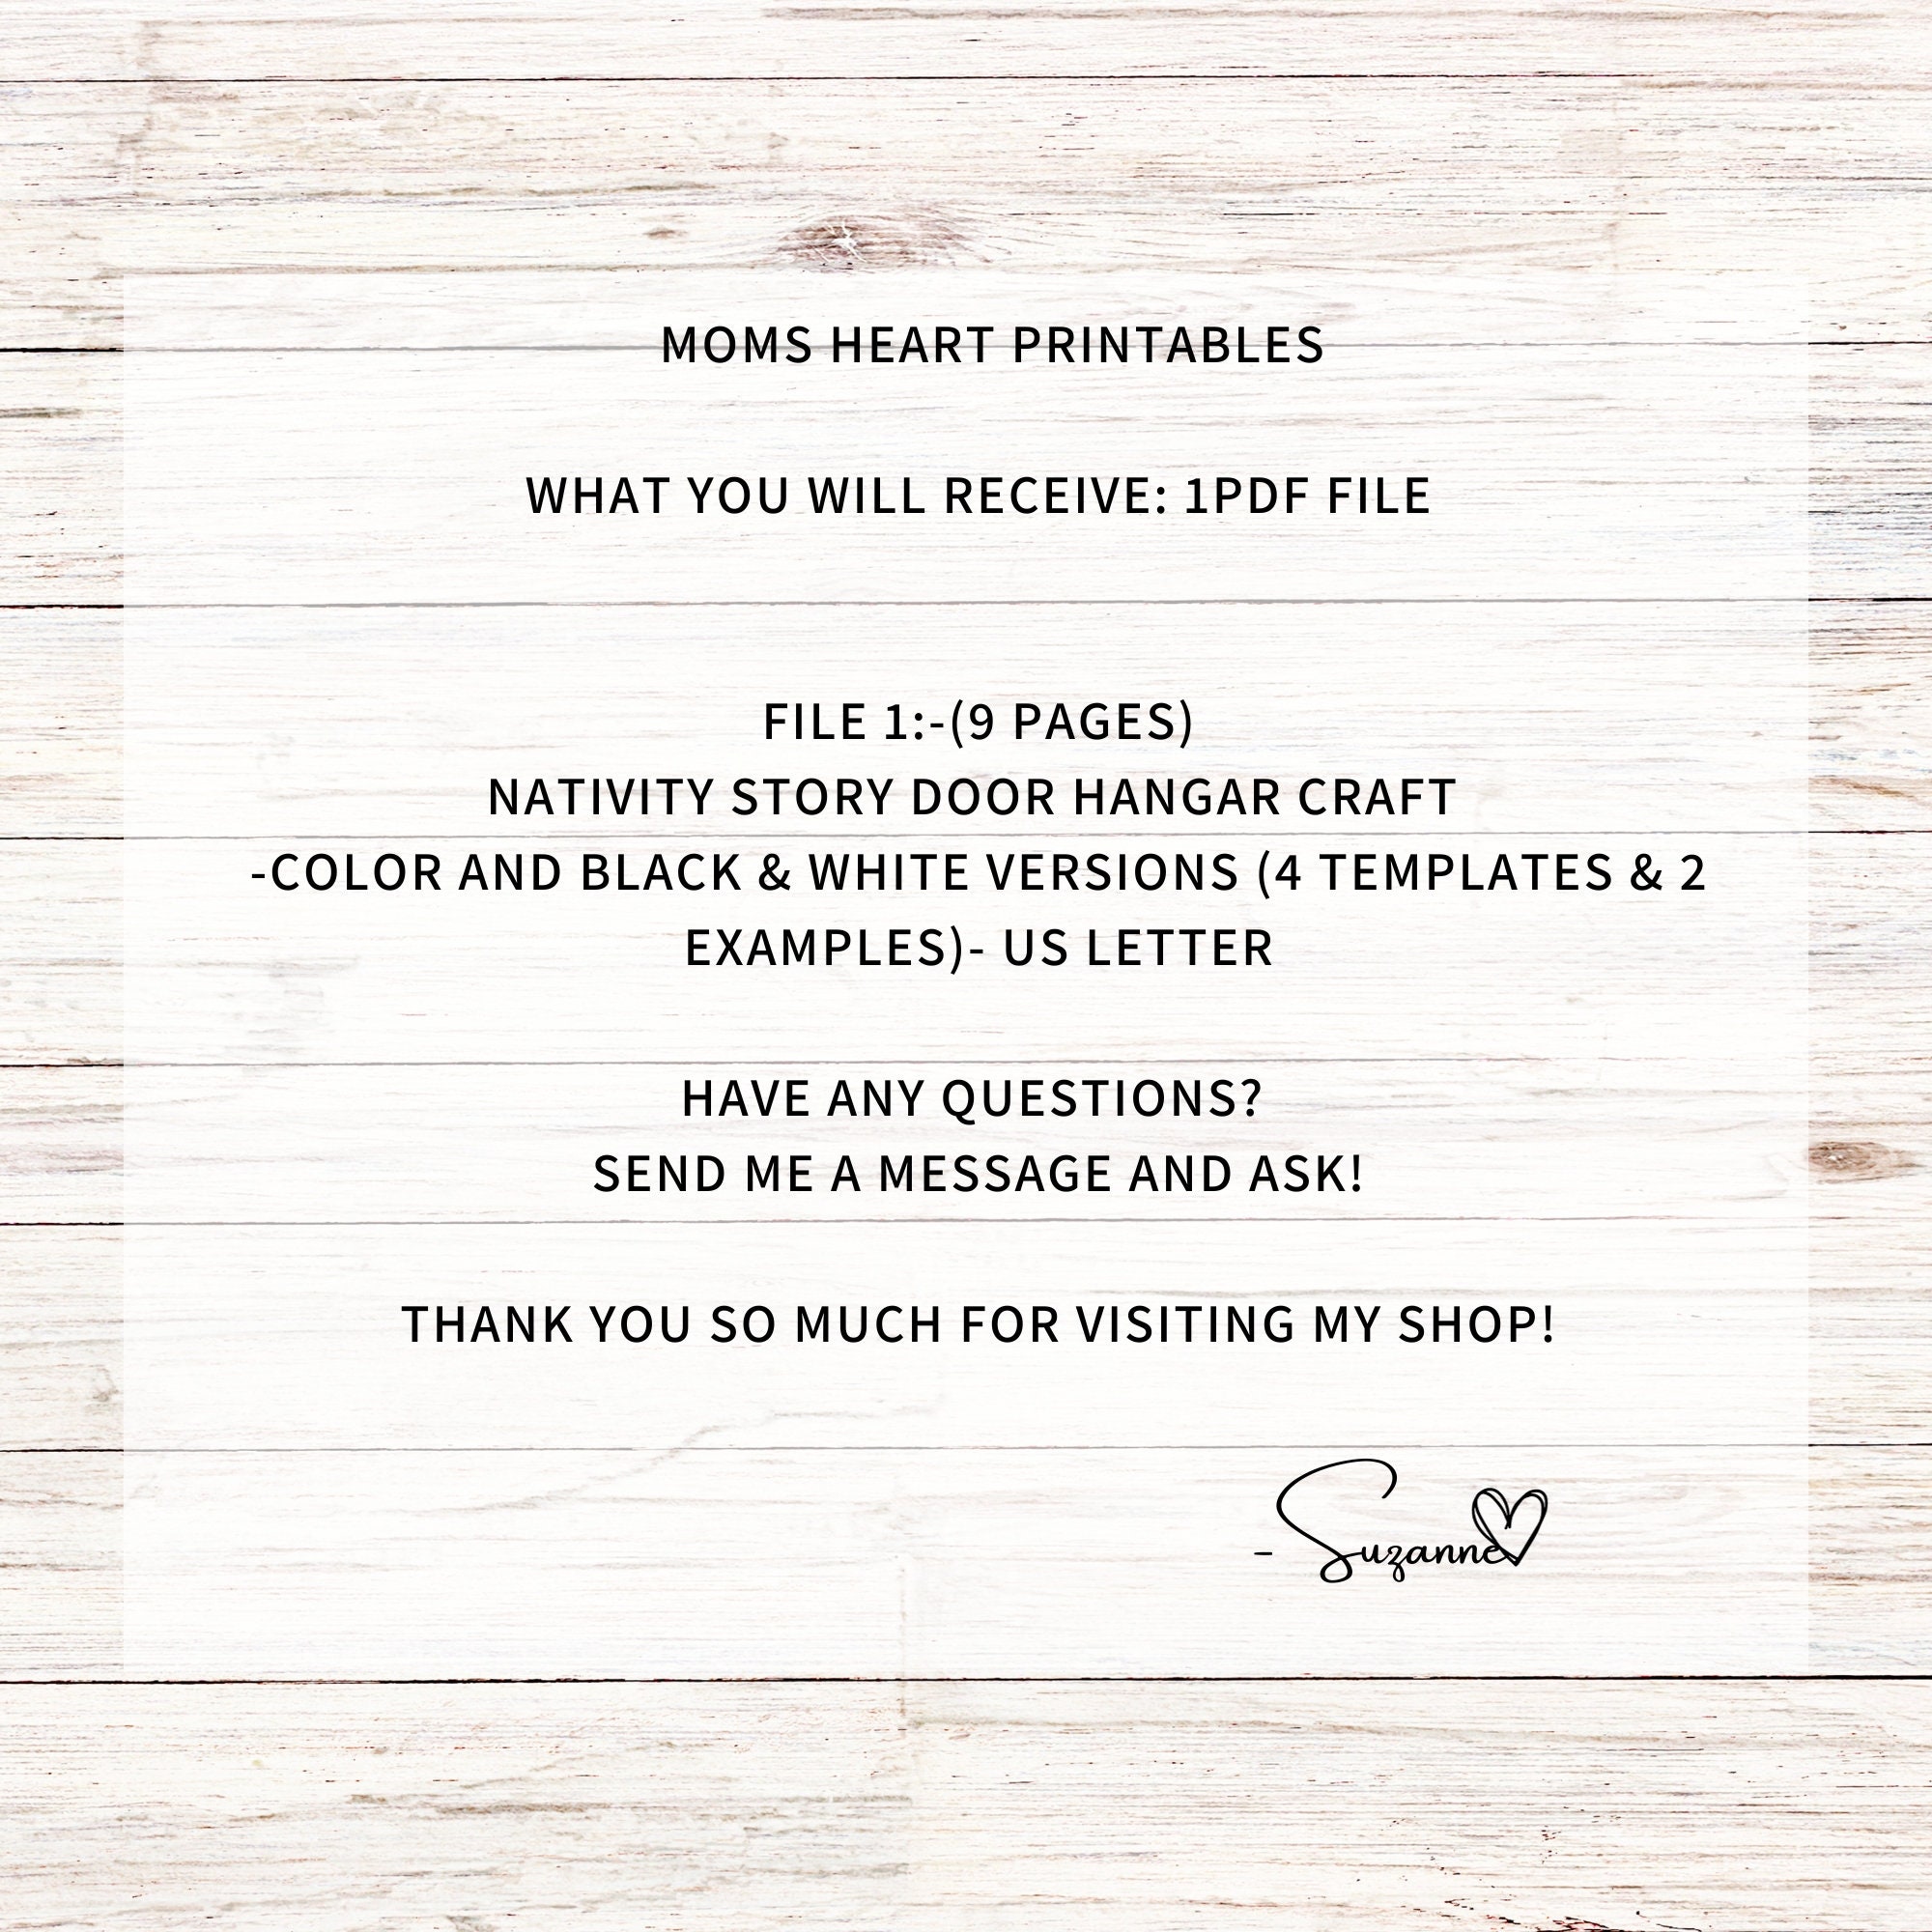 MOMS HEART PRINTABLES
WHAT YOU WILL RECEIVE: 1PDF FILE
FILE 1:-(9 PAGES)
NATIVITY STORY DOOR HANGAR CRAFT
-COLOR AND BLACK & WHITE VERSIONS (4 TEMPLATES & 2
EXAMPLES)- US LETTER
HAVE ANY QUESTIONS?
SEND ME A MESSAGE AND ASK!
THANK YOU SO MUCH FOR VISITING MY SHOP!
- Suzanne